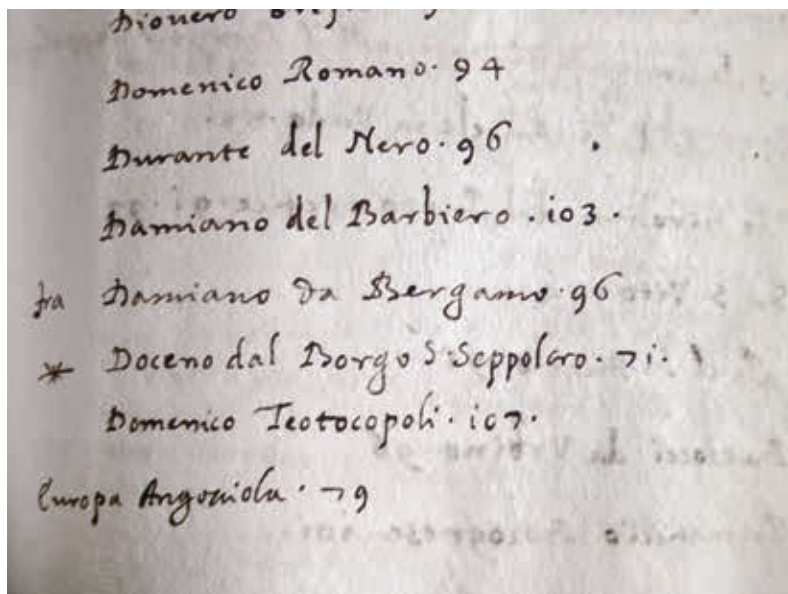 Dionero
Domenico Romano. 94
Durante del Nero. 96
Damiano del Barbiero. 103.
fra Damiano da Bergamo. 96
* Doceno dal Borgo S. Seppolcro. 71.
Domenico Teotocopoli. 107.
Europa Angosciola. 79